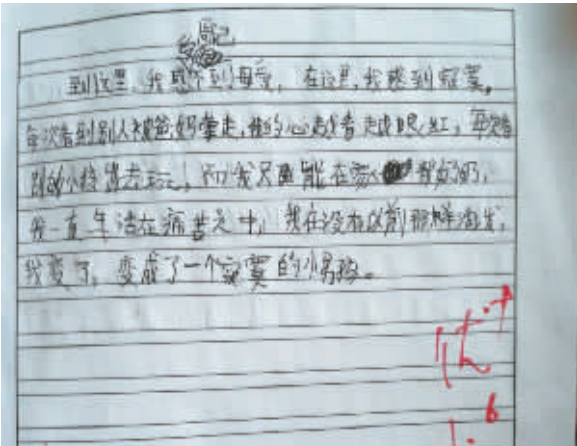 周记
到这里,我感不到母爱,在这里,我感到寂寞。
每次看到别人被爸妈拿走,我的心
别的小孩出去玩,而我只能在家
我一直生活在痛苦之中,我在没有以前那样活发,
我变了,变成了一个寂寞的小男孩。
优
1.6